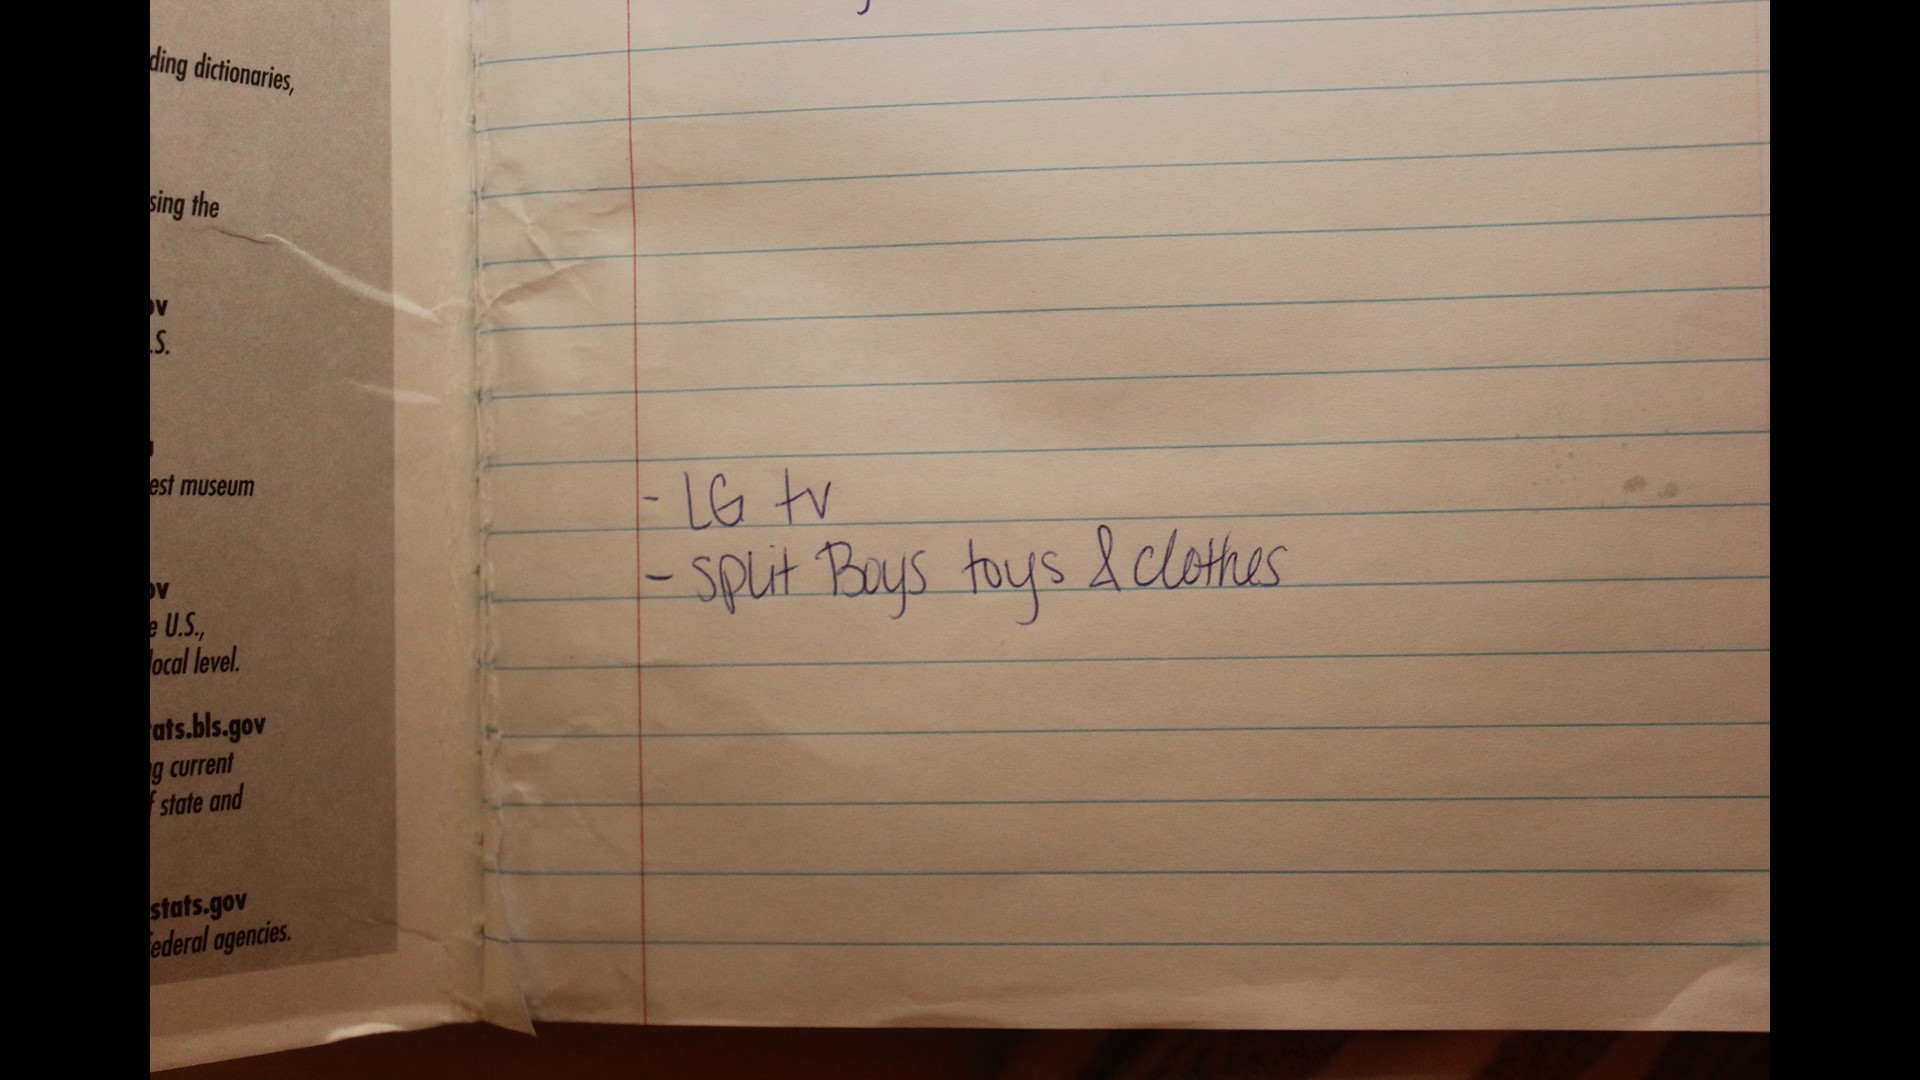 ding dictionaries,
sing the
ov
.S.
est museum
ov
e U.S.,
local level.
ats.bls.gov
g current
f state and
stats.gov
ederal agencies.
- LG tv
- split Boys toys & clothes